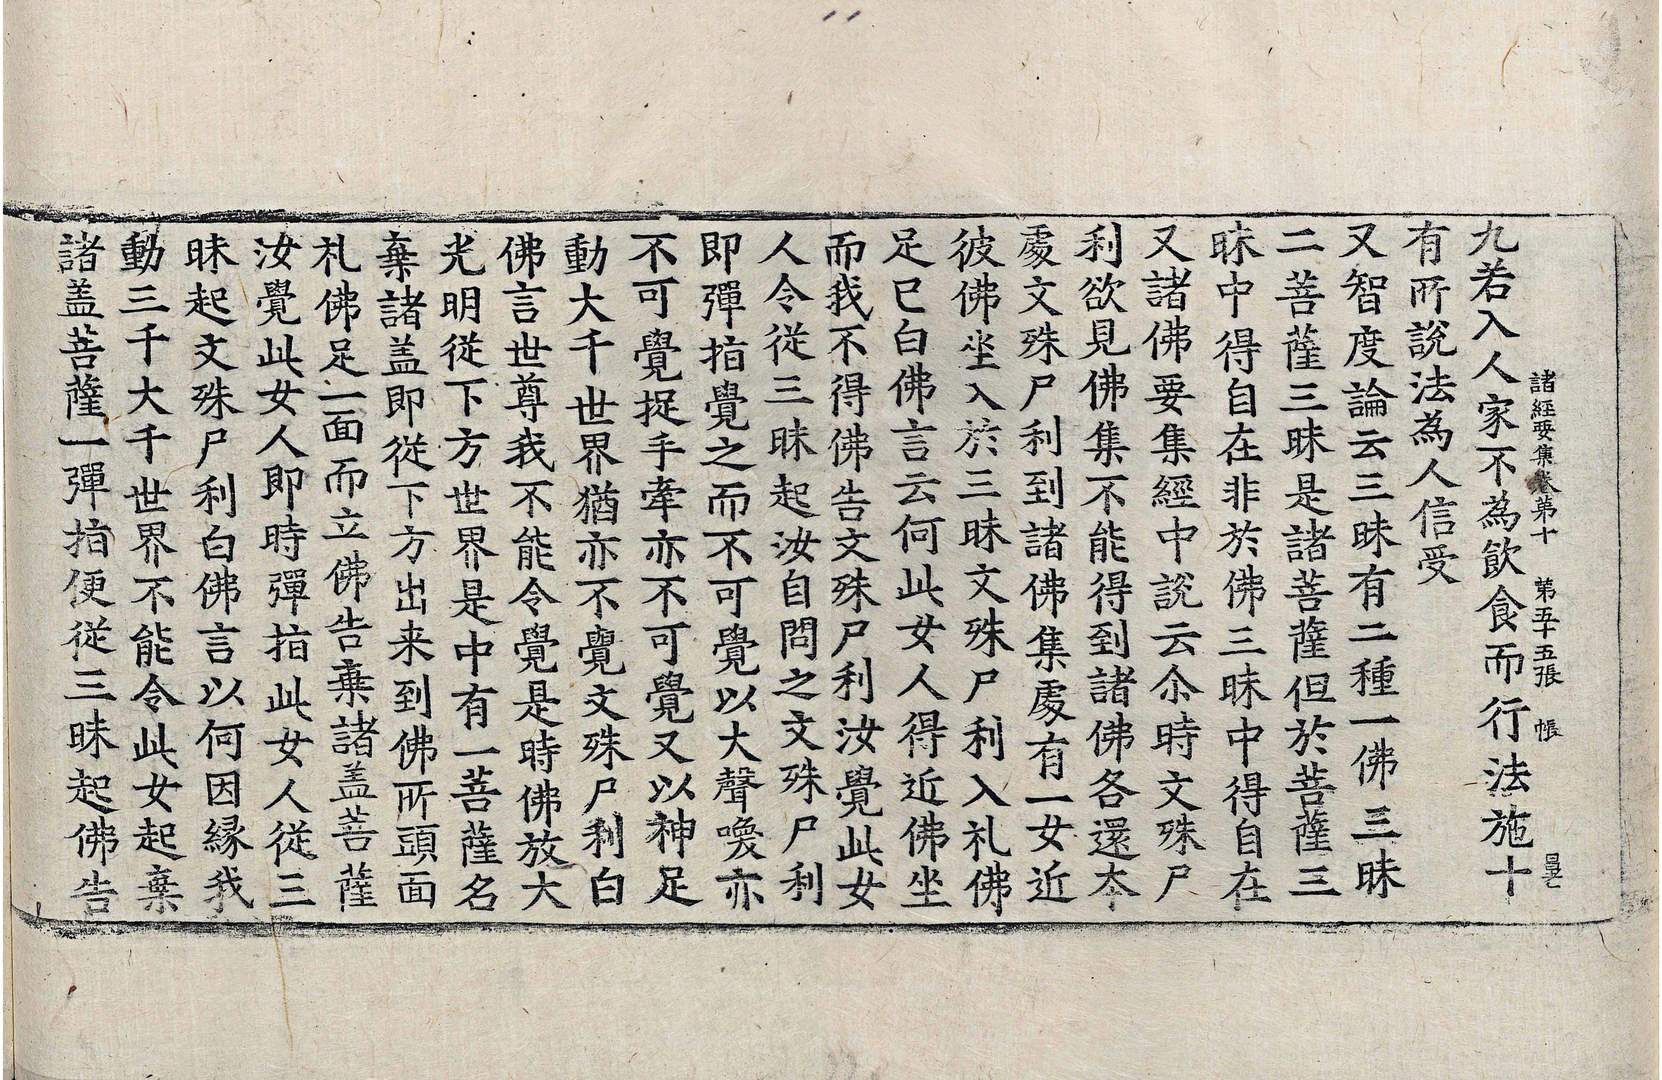 諸經要集卷第十 第五十五張 帳
九若入人家不為飲食而行法施十
有所說法為人信受
又智度論云三昧有二種一佛三昧
二菩薩三昧是諸菩薩但於菩薩三
昧中得自在非於佛三昧中得自在
又諸佛要集經中說云尒時文殊尸
利欲見佛集不能得到諸佛各還夲
處文殊尸利到諸佛集處有一女近
彼佛坐入於三昧文殊尸利入礼佛
足已白佛言云何此女人得近佛坐
而我不得佛告文殊尸利汝覺此女
人令從三昧起汝自問之文殊尸利
即彈指覺之而不可覺以大聲喚亦
不可覺捉手牽亦不可覺又以神足
動大千世界猶亦不覺文殊尸利白
佛言世尊我不能令覺是時佛放大
光明從下方世界是中有一菩薩名
棄諸盖即從下方出来到佛所頭面
礼佛足一面而立佛告棄諸盖菩薩
汝覺此女人即時彈指此女人從三
昧起文殊尸利白佛言以何因緣我
動三千大千世界不能令此女起棄
諸盖菩薩一彈指便從三昧起佛告